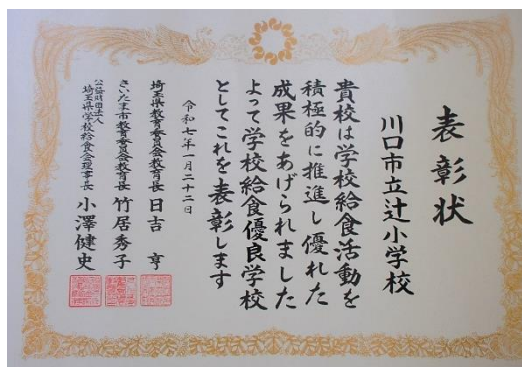 表彰状
川口市立辻小学校
貴校は学校給食活動を
積極的に推進し優れた
成果をあげられました
よって学校給食優良学校
としてこれを表彰します
令和七年一月二十二日
埼玉県教育委員会教育長 日吉 亨
さいたま市教育委員会教育長 竹居秀子
公益財団法人
埼玉県学校給食会理事長 小澤健史